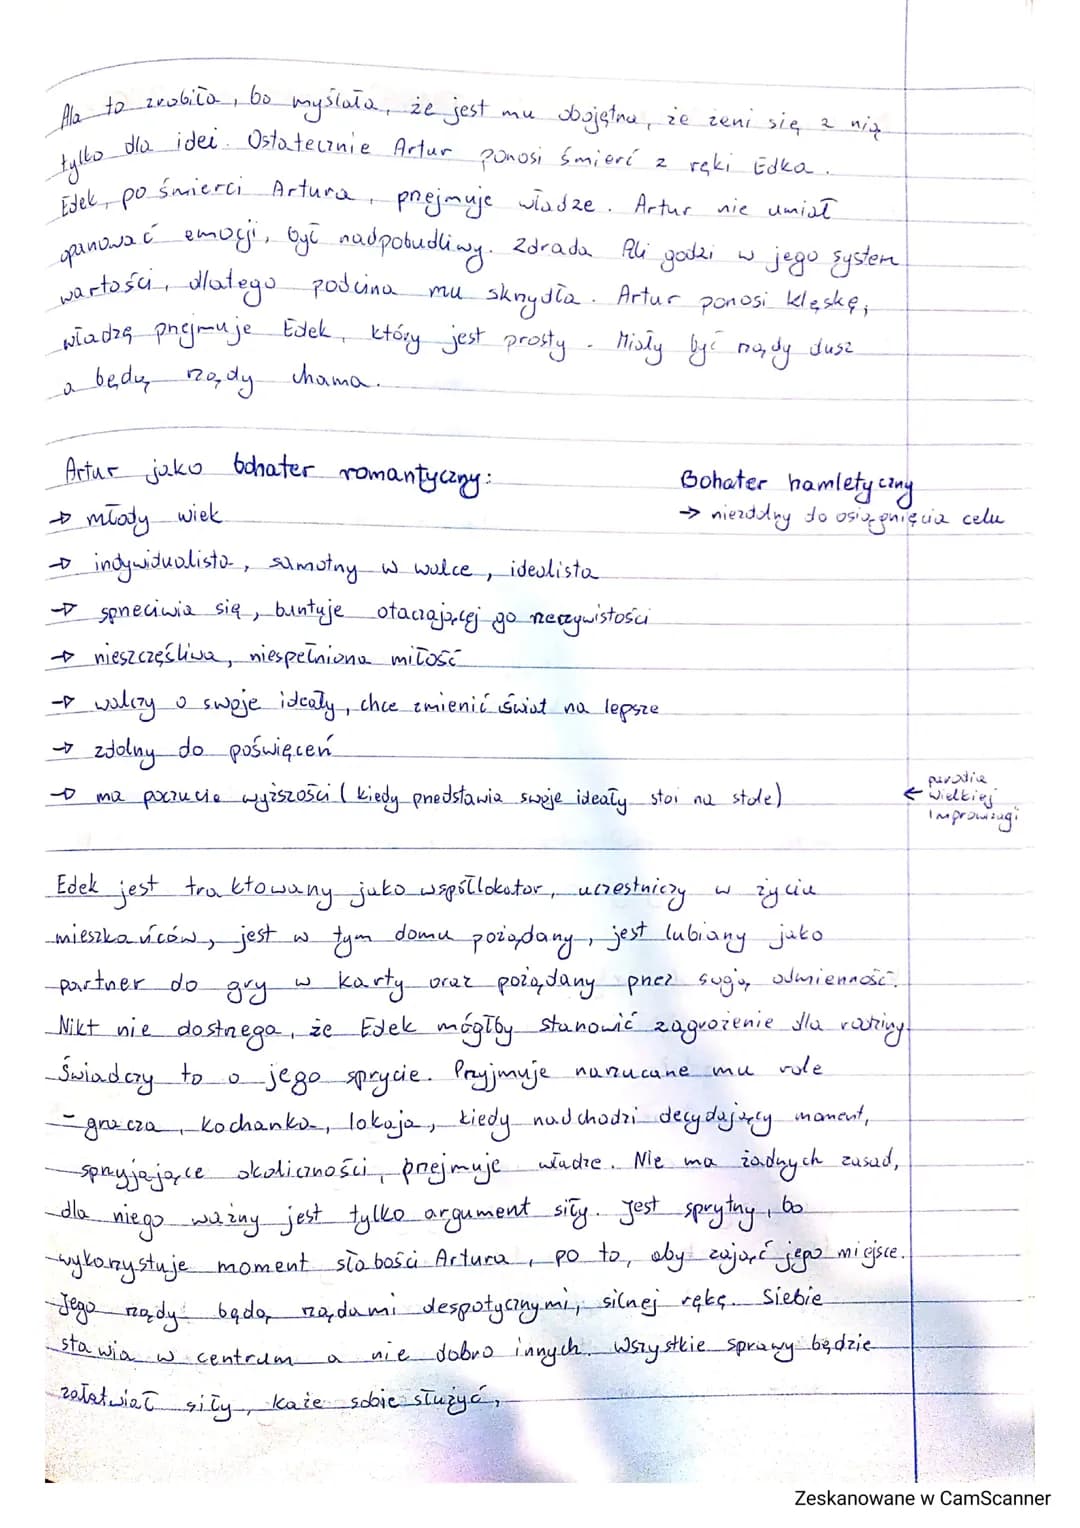 Ala to zrobiła, bo myślała, że jest mu obojętna, że żeni się z nią
tylko dla idei. Ostatecznie Artur ponosi śmierć z ręki Edka.
Edek, po śmierci Artura, przejmuje władze. Artur nie umiał
opanować emocji, był nadpobudliwy. Zdrada Ali godzi w jego system
wartości, dlatego podcina mu skrzydła. Artur ponosi klęskę,
władzę przejmuje Edek, który jest prosty. Miały być rządy dusz
a będą rządy chama.
Artur jako bohater romantyczny:
Bohater hamletyczny
→ młody wiek
→ niezdolny do osiągnięcia celu
→ indywidualista, samotny w walce, idealista
→ sprzeciwia się, buntuje otaczającej go rzeczywistości
→ nieszczęśliwa, niespełniona miłość
→ walczy o swoje ideały, chce zmienić świat na lepsze
→ zdolny do poświęceń
→ ma poczucie wyższości (kiedy przedstawia swoje ideały stoi na stole)
parodia
← Wielkiej
Improwizacji
Edek jest traktowany jako współlokator, uczestniczy w życiu
mieszkańców, jest w tym domu pożądany, jest lubiany jako
partner do gry w karty oraz pożądany przez swoją odmienność.
Nikt nie dostrzega, że Edek mógłby stanowić zagrożenie dla rodziny.
Świadczy to o jego sprycie. Przyjmuje narzucane mu role
- gracza, kochanka, lokaja, kiedy nadchodzi decydujący moment,
sprzyjające okoliczności, przejmuje władze. Nie ma żadnych zasad,
dla niego ważny jest tylko argument siły. Jest sprytny, bo
wykorzystuje moment słabości Artura, po to, aby zająć jego miejsce.
Jego rządy będą rządami despotycznymi, silnej ręki. Siebie
stawia w centrum a nie dobro innych. Wszystkie sprawy będzie
załatwiał siły, każe sobie służyć,
Zeskanowane w CamScanner